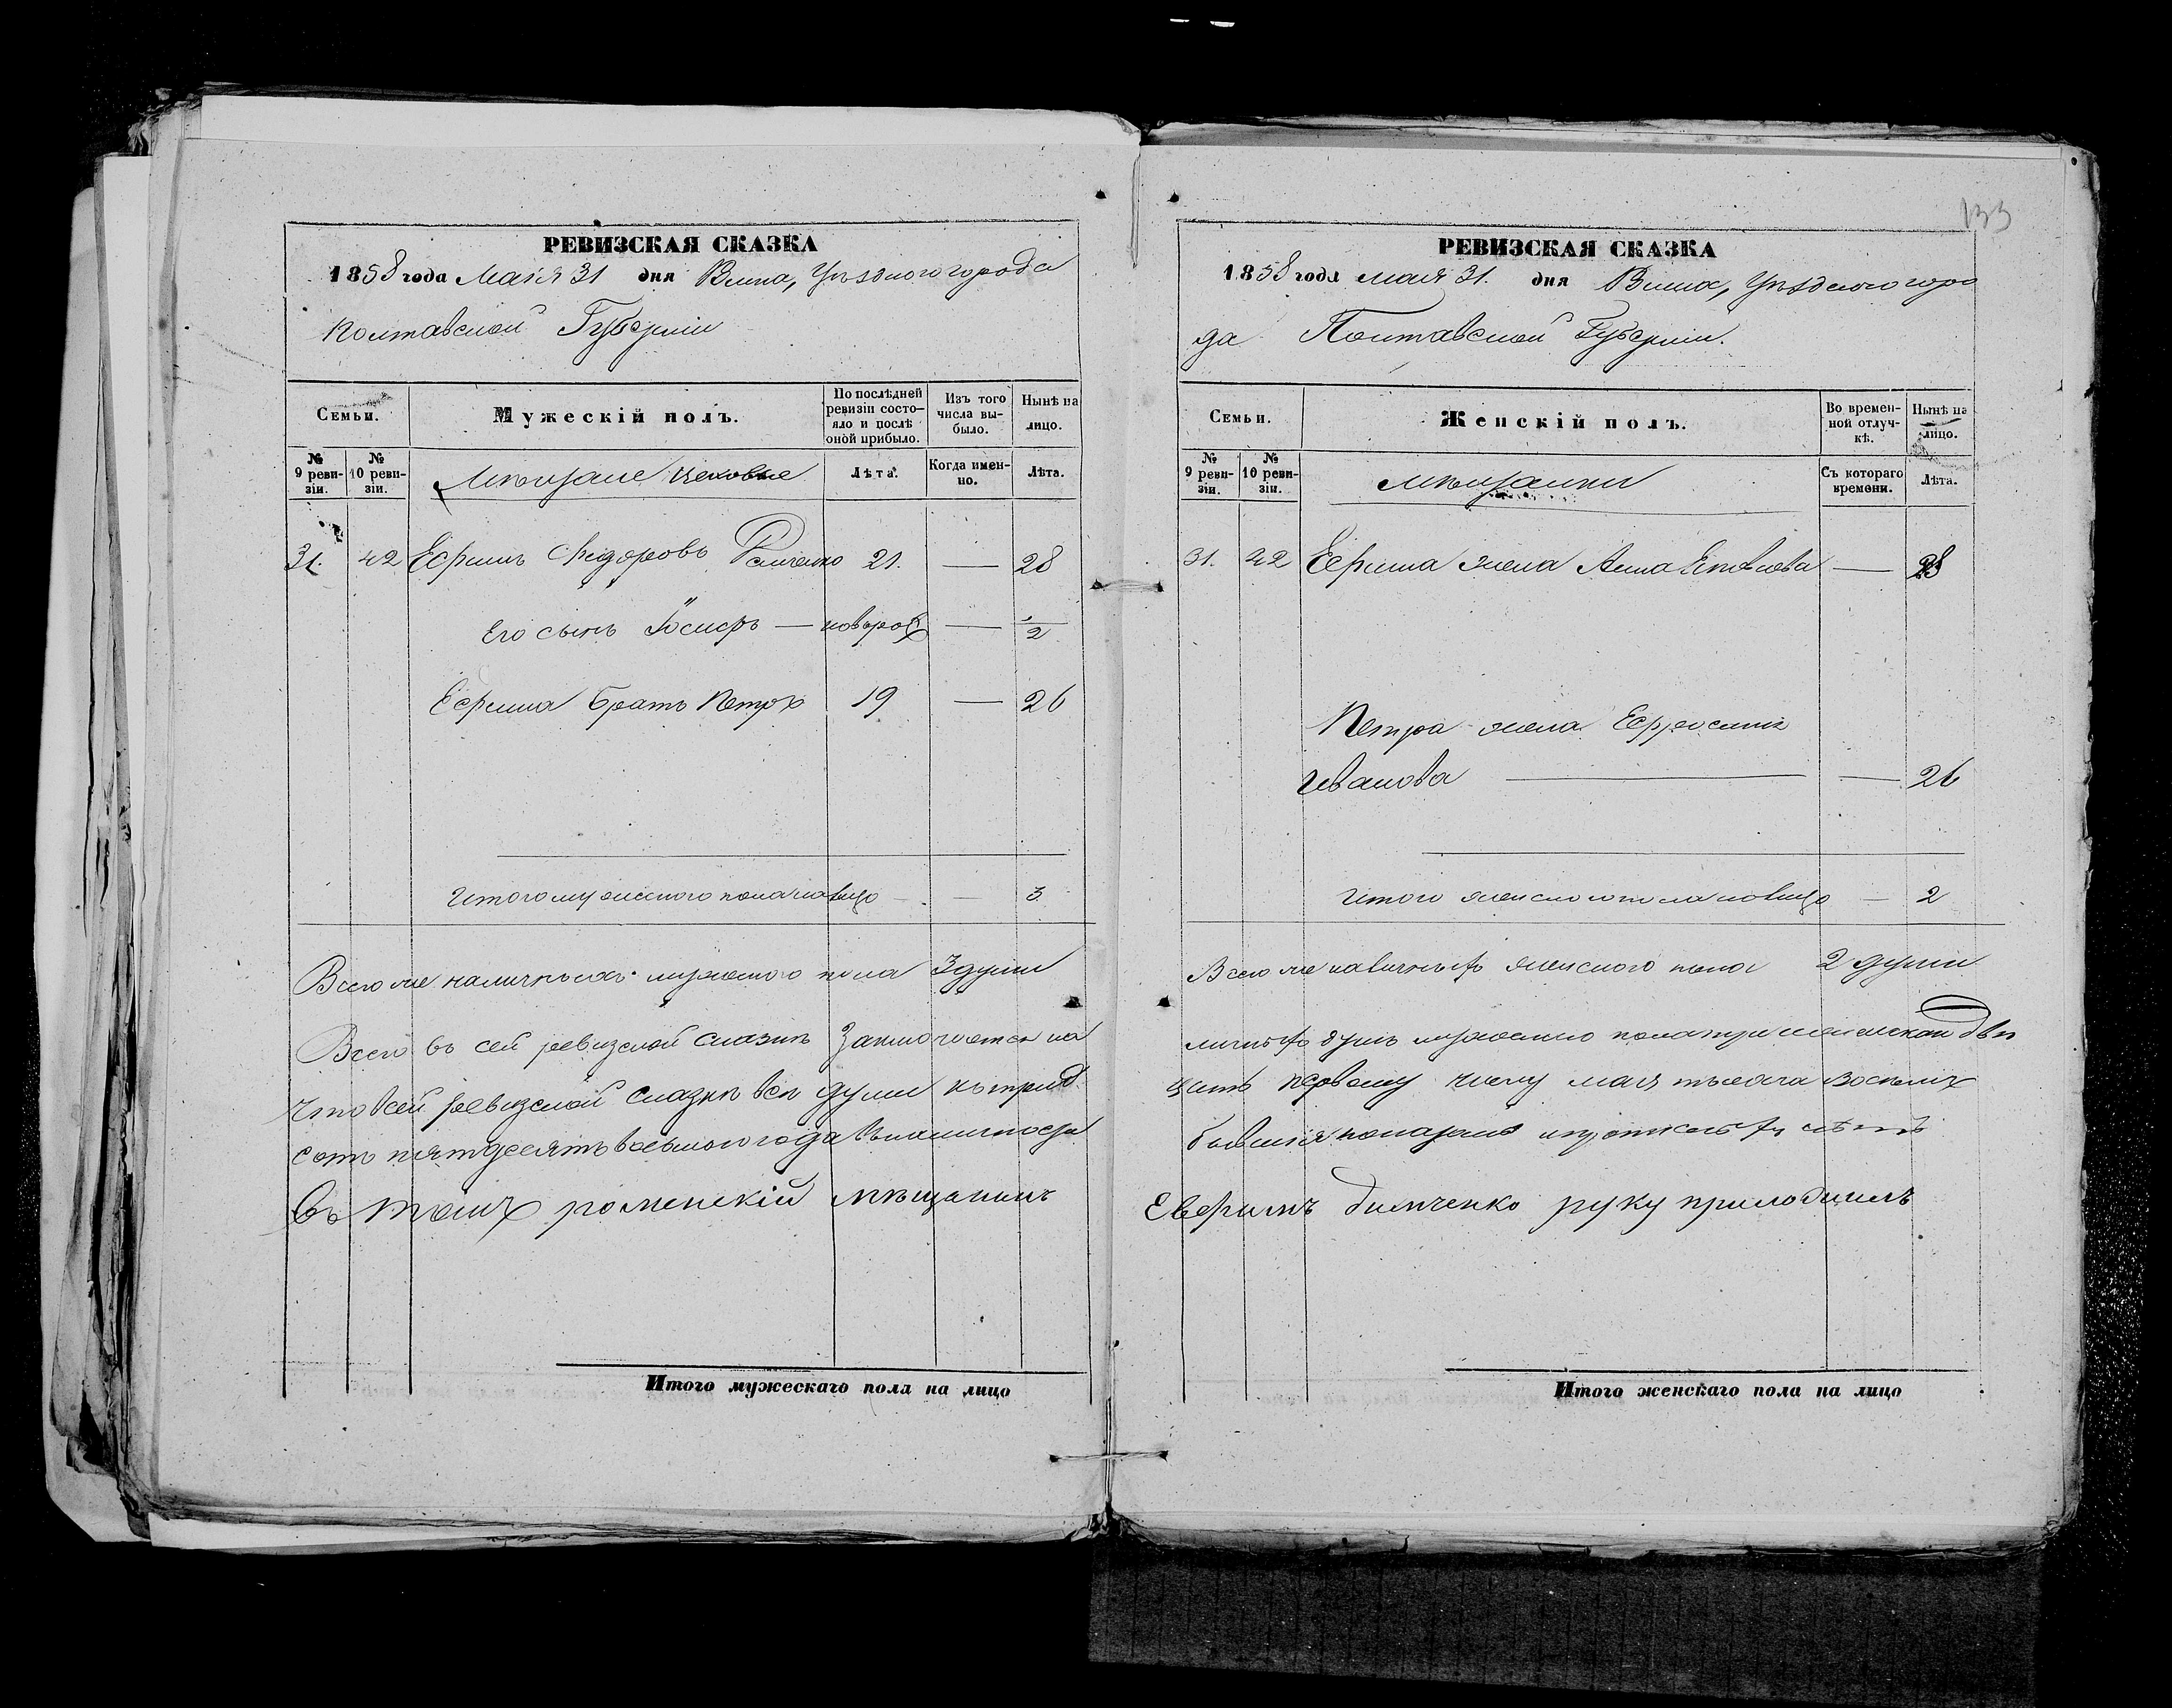 133
РЕВИЗСКАЯ СКАЗКА
1858 года Мая 31 дня Уѣзднаго города
Полтавской Губерніи
Семьи.
Мужескій полъ.
По послѣдней ревизіи состояло и послѣ оной прибыло.
Изъ того числа выбыло.
Нынѣ на лицо.
№ 9 ревизіи.
№ 10 ревизіи.
Мѣщане Цеховые
Лѣта.
Когда именно.
Лѣта.
31. 42 Ефимъ Федоровъ 21. — 28
Его сынъ Іосифъ — новорож — 2
Ефима братъ Петръ 19 — 26
Итого мужескаго пола на лицо — — 3
Всего же наличныхъ мужескаго пола 3 души
Всего въ сей ревизской сказкѣ заключается на
что в сей ревизской сказкѣ всѣ души къ трид
сотъ пятдесятъ восьмого года въ наличности
Въ томъ роменскій мѣщанинъ
Итого мужескаго пола на лицо
РЕВИЗСКАЯ СКАЗКА
1858 года мая 31. дня Уѣзднаго горо
да Полтавской Губерніи.
Семьи.
Женскій полъ.
Во временной отлучкѣ.
Нынѣ на лицо.
№ 9 ревизіи.
№ 10 ревизіи.
мѣщанки
Съ котораго времени.
Лѣта.
31. 42 Ефима жена Анна Яковлева — 28
Петра жена Ефросинія
Иванова — — 26
Итого женскаго пола на лицо — 2
Всего же наличныхъ женскаго пола 2 души
личныхъ душъ мужескаго пола три женскаго двѣ
цать первому числу мая тысяча восемь
бывшія показаны и пропискныхъ нѣтъ
Евфимъ димченко руку приложилъ
Итого женскаго пола на лицо